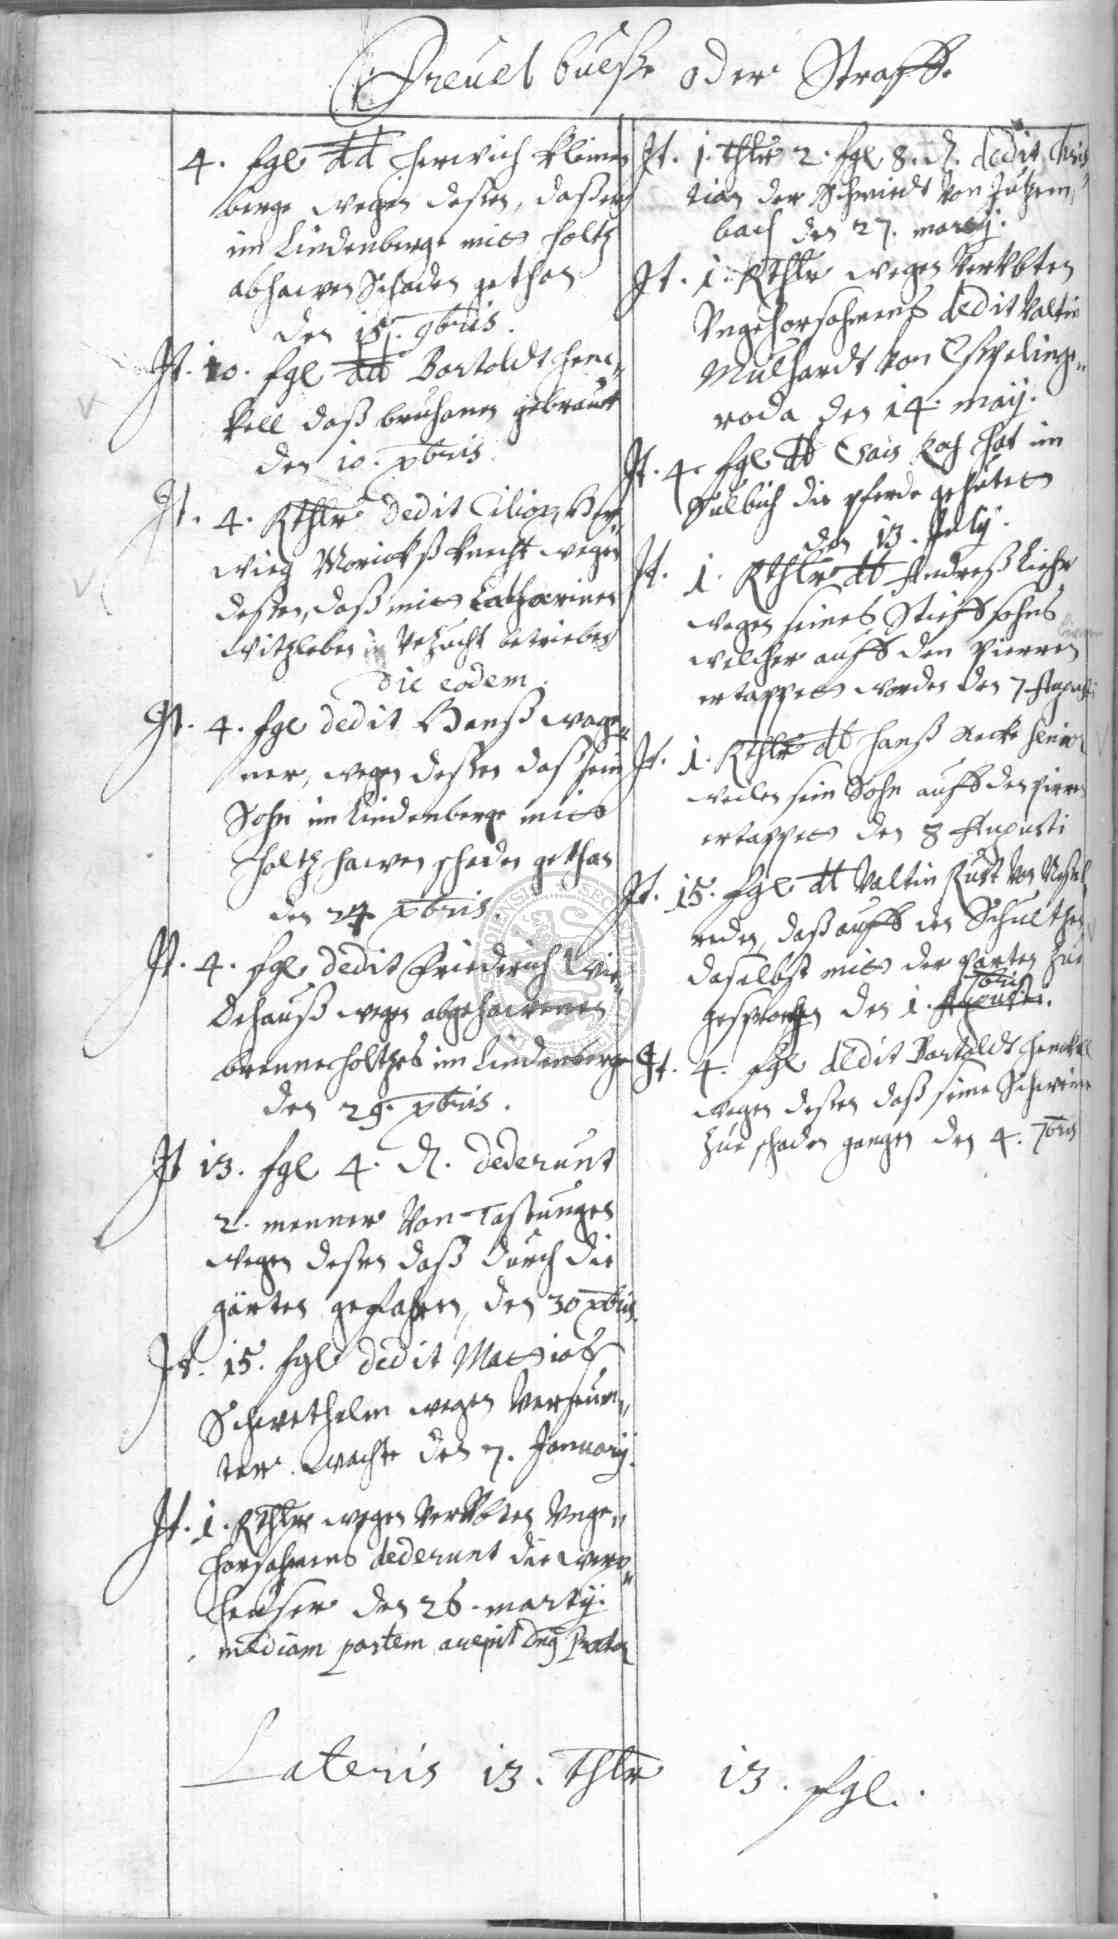 Freuel buesse oder Straff.
4. sgl dd Herwich Klinnen
berge wegen dessen, daß er
im Lindenberge mit holtz
abhawen Schaden gethan
den 15. 9bris.
It. 10. sgl dd Bartoldt Henc„
kell daß bruhanen gebrauet
den 10. xbris.
It. 4. Rthlr dedit Cilian
wegen
dessen, daß mit Catharinen
Witzleben in Unzucht betrieben
die eodem.
It. 4. sgl dedit Hanß Wage„
ner, wegen dessen daß sein
Sohn im Lindenberge mit
holtz hawen schaden gethan
den 24. xbris.
It. 4. sgl dedit Friederich Wie„
dehauß wegen abgehawenen
brenneholtzes im Lindenberge
den 29. xbris.
It 13. sgl 4. d. dederunt
2. menner Von Tastungen
wegen dessen daß durch die
gärten gefahren, den 30 xbris
It. 15. sgl dedit Matthias
Schwethelm wegen Verseum„
ter wacht den 7. January.
It. 1. Rthlr wegen Verübten Unge„
horsahmens dederunt die Werx„
heuser den 26. marty.
mediam partem accepit
Lateris 13. thlr 13. sgl.
It. 1. thlr 2. sgl 8. d. dedit Chris„
tian der Schmiedt von Jützen„
bach den 27. marty.
It. 1. Rthlr wegen Verübten
Ungehorsahmens dedit Valtin
Mulhardt von Eschelinge„
roda den 14. may.
It. 4. sgl dd Claus Koch hat im
Sülbich die pferde gehütet
den 13. July.
It. 1. Rthlr dd Andreß Liehr
wegen seines Stieffsohns
welcher auff den
ertappet worden den 7 Augusti
It. 1. Rthlr dd Hanß Recke senior
weilen sein Sohn auff den
ertappet den 8 Augusti
It. 15. sgl dd Valtin Rust von Nessel„
reden, daß auff den Schulthen
daselbst mit der garten zue
gesprochen den 1. 7bris
It. 4. sgl dedit Bartoldt Henckel
wegen dessen daß seine Schweine
zue schaden gangen den 4. 7bris